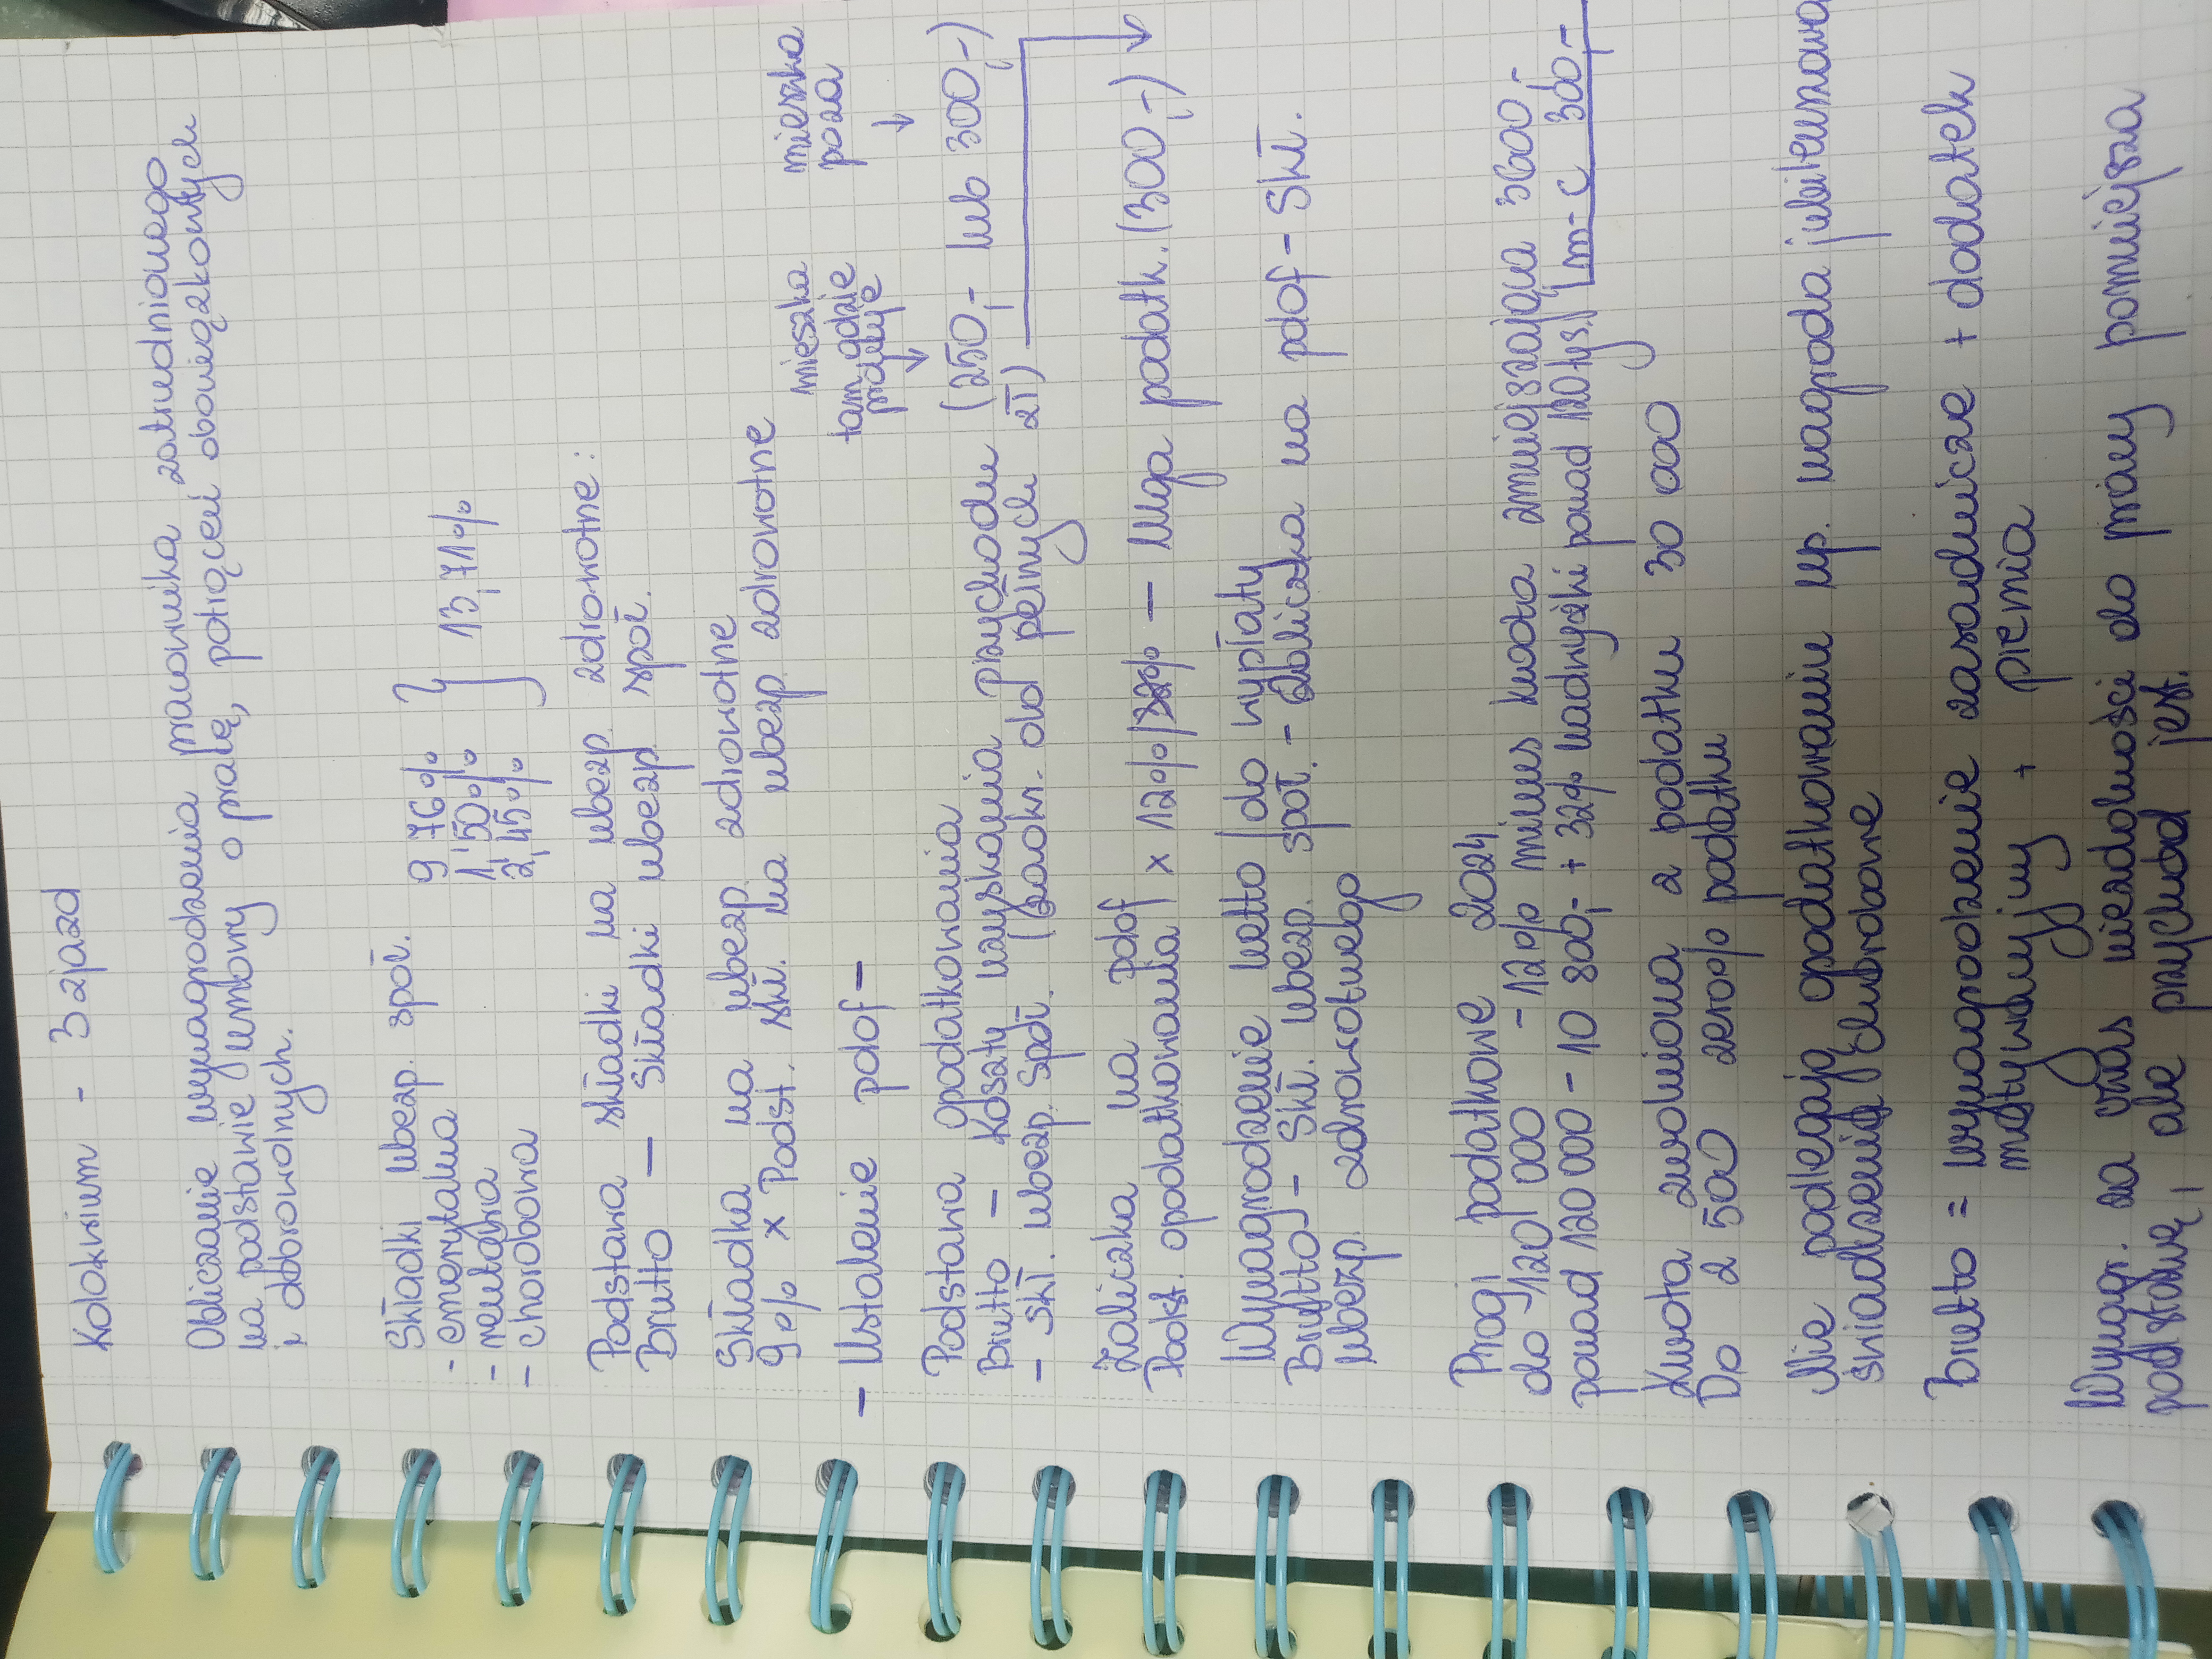 Kolokwium - 3 zjazd
Obliczanie wynagrodzenia pracownika zatrudnionego
na podstawie umowy o pracę, potrąceń obowiązkowych
i dobrowolnych.
Składki ubezp. społ.
- emerytalna 9,76%
- rentowa 1,50% } 13,71%
- chorobowa 2,45%
Podstawa składki na ubezp zdrowotne:
Brutto - składki ubezp społ.
Składka na ubezp zdrowotne
9% x Podst. skł. na ubezp zdrowotne
- Ustalenie pdof -
mieszka tam gdzie pracuje ↓
mieszka poza ↓
Podstawa opodatkowania
Brutto - Koszty uzyskania Przychodu (250,- lub 300,-)
- skł. ubezp. społ. (zaokr. od pełnych zł)
Zaliczka na pdof
Podst. opodatkowania x 12%/32% - Ulga podatk. (300,-)
Wynagrodzenie netto / do wypłaty
Brutto - Skł. ubezp. społ. - Zaliczka na pdof - Skł.
ubezp. zdrowotnego
Progi podatkowe 2024
do 120 000 - 12% minus kwota zmniejszająca 3600,-
ponad 120 000 - 10 800,- + 32% nadwyżki ponad 120 tys. m-c 300,-
Kwota zwolniona z podatku 30 000
Do 2 500 zero% podatku
Nie podlegają opodatkowaniu np. nagroda jubileuszowa
świadczenia
Brutto = wynagrodzenie zasadnicze + dodatek
motywacyjny + premia
Wynagr. za czas niezdolności do pracy pomniejsza
podstawę, ale przychód jest.